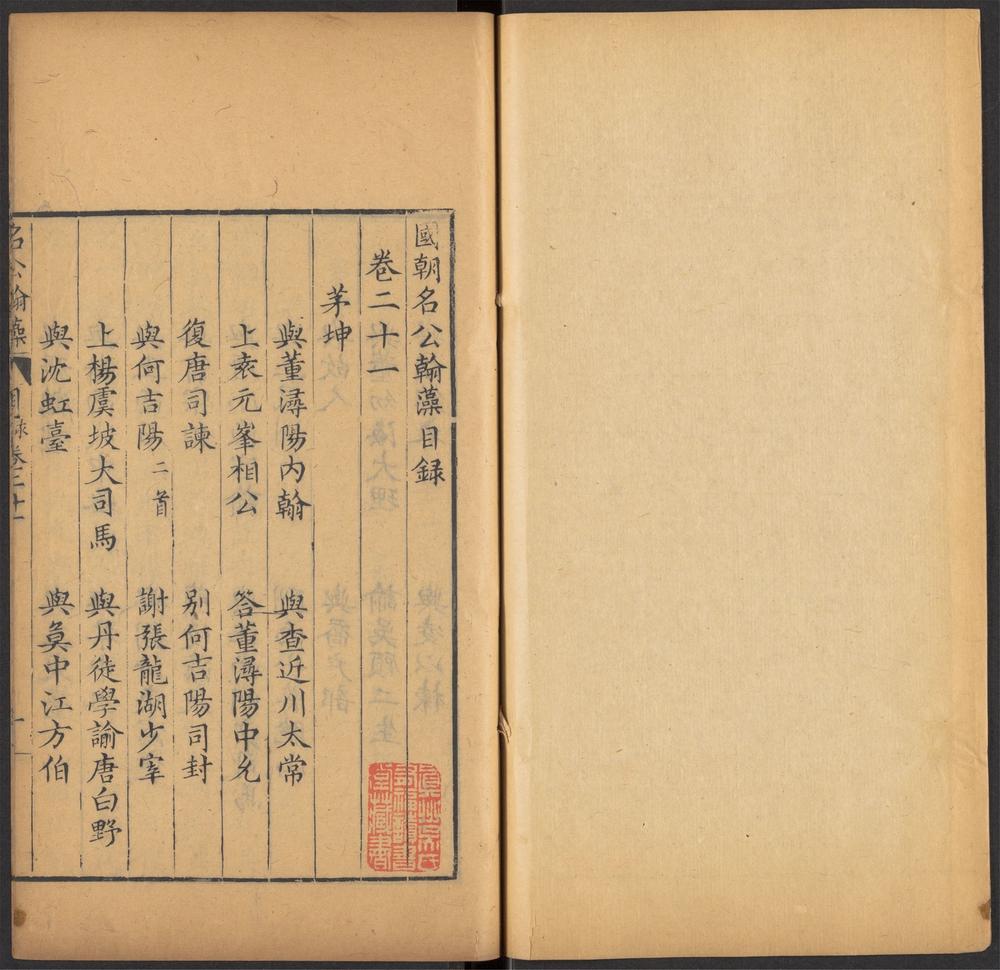 國朝名公翰藻目録
卷二十一
茅坤
與董潯陽内翰　與查近川太常
上袁元峯相公　答董潯陽中允
復唐司諫　别何吉陽司封
與何吉陽二首　謝張龍湖少宰
上楊虞坡大司馬　與丹徒學諭唐白野
與沈虹臺　與莫中江方伯
名公翰藻　目録卷二十一　一